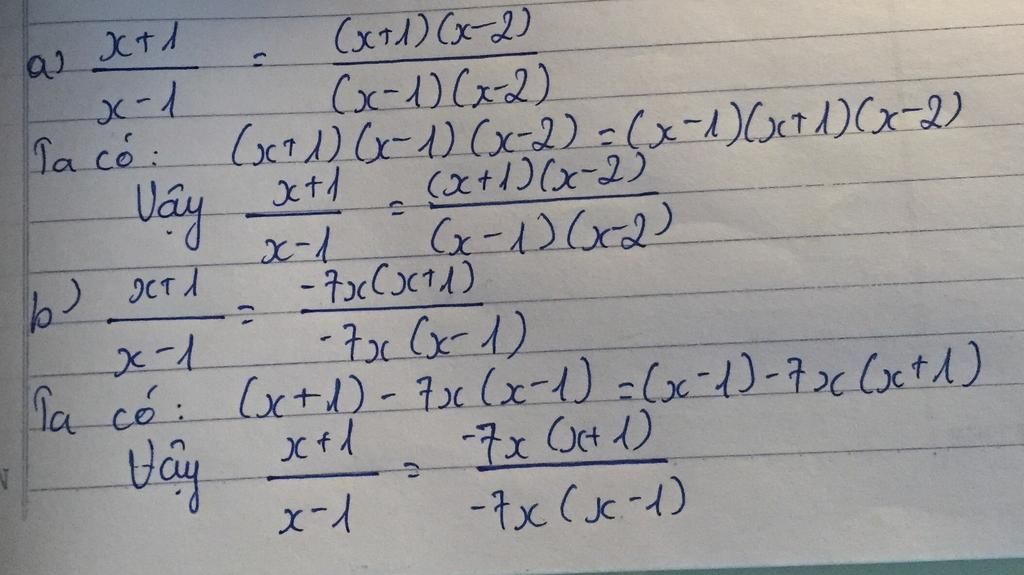 a) x+1/x-1 = (x+1)(x-2)/(x-1)(x-2)
Ta có: (x+1)(x-1)(x-2)=(x-1)(x+1)(x-2)
Vậy x+1/x-1 = (x+1)(x-2)/(x-1)(x-2)
b) x+1/x-1 = -7x(x+1)/-7x(x-1)
Ta có: (x+1)-7x(x-1)=(x-1)-7x(x+1)
Vậy x+1/x-1 = -7x(x+1)/-7x(x-1)